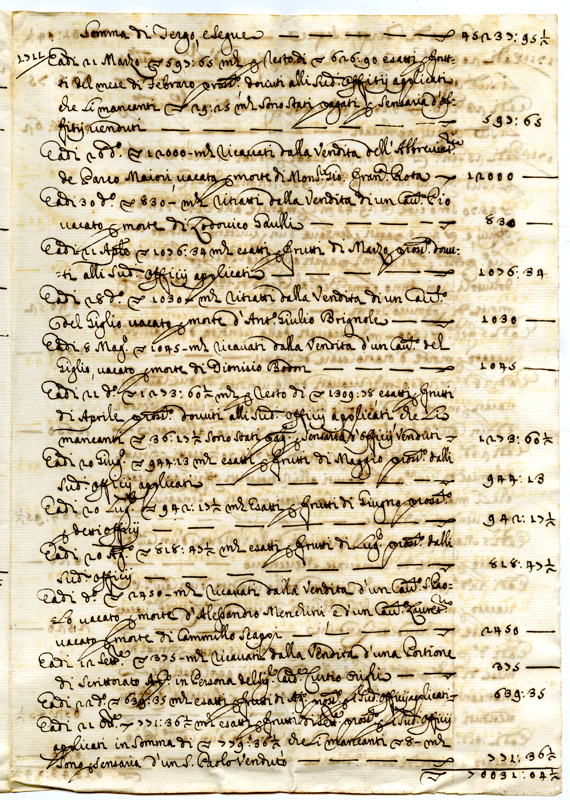 Somma di Tergo, e segue — 45237:95½
1711 Eadi 21 Marzo ≈ 597:65 mta p resto di ≈ 626:90 esatti frut-
ti del mese di Febraro pross.o douuti alli Sud. Offitij applicati
che li mancanti ≈ 29:25 mta sono stati pagati p senseria d'of-
fitij uenduti — 597:65
Eadi 26 d.o ≈ 12000 - mta ricauati dalla Vendita dell'Abbreuiat.
de Parco Maiori, uacata p morte di Mons. Gio: Fran. Rota — 12000 —
Eadi 30 d.o ≈ 830 - mta ritratti della Vendita di un Cau. Pio
uacato p morte di Lodouico Gaulli — 830 —
Eadi 11 Aple ≈ 1076:34 mta esatti p frutti di Marzo pross.o douu-
-ti alli Sud. Offitij applicati — 1076:34
Eadi 28 d.o ≈ 1030 - mta ritratti dalla Vendita di un Cau.
del Giglio uacato p morte d'Ant. Giulio Brignole — 1030 —
Eadi 8 Mag. ≈ 1045 - mta ricauati dalla Vendita d'un Cau. del
Giglio, uacato p morte di Dionisio — 1045 —
Eadi 11 d.o ≈ 1273:60½ mta p resto di ≈ 1309:78 esatti p frutti
di Aprile pross.o douuti alli Sud. Offitij applicati che li
mancanti ≈ 36:17½ sono stati pag. p senseria d'offitij Venduti — 1273:60½
Eadi 20 Giug. ≈ 944:13 mta esatti p frutti di Maggio pross.o dalli
Sud. Offitij applicati — 944:13
Eadi 20 Lug. ≈ 942:17½ mta esatti p frutti di Giugno pross.o
p detti offitij — 942:17½
Eadi 20 Ag. ≈ 818:47½ mta esatti p frutti di Lug. pross.o dalli
Sud. Offitij — 818:47½
Eadi d.o ≈ 2450 - mta ricauati dalla Vendita d'un Cau. S. Pao-
-lo uacato p morte d'Alessandro e d'un Cau. Lauret.
uacato p morte di Cammillo — 2450 —
Eadi 12 Sett. ≈ 375 - mta ricauati dalla Vendita d'una Portione
di Scrittorato in Persona del Curtio — 375 —
Eadi 22 d.o ≈ 639:35 mta esatti p frutti di Ag. pross.o p li Sud. Offitij applicati — 639:35
Eadi 21 ≈ 771:36½ mta esatti p frutti di Sett. pross.o p li Sud. Offitij
applicati in somma di ≈ 779:36½ che li mancanti ≈ 8 - mta
sono p senseria d'un S. Paolo Venduto — 771:36½
≈ 70031:04½